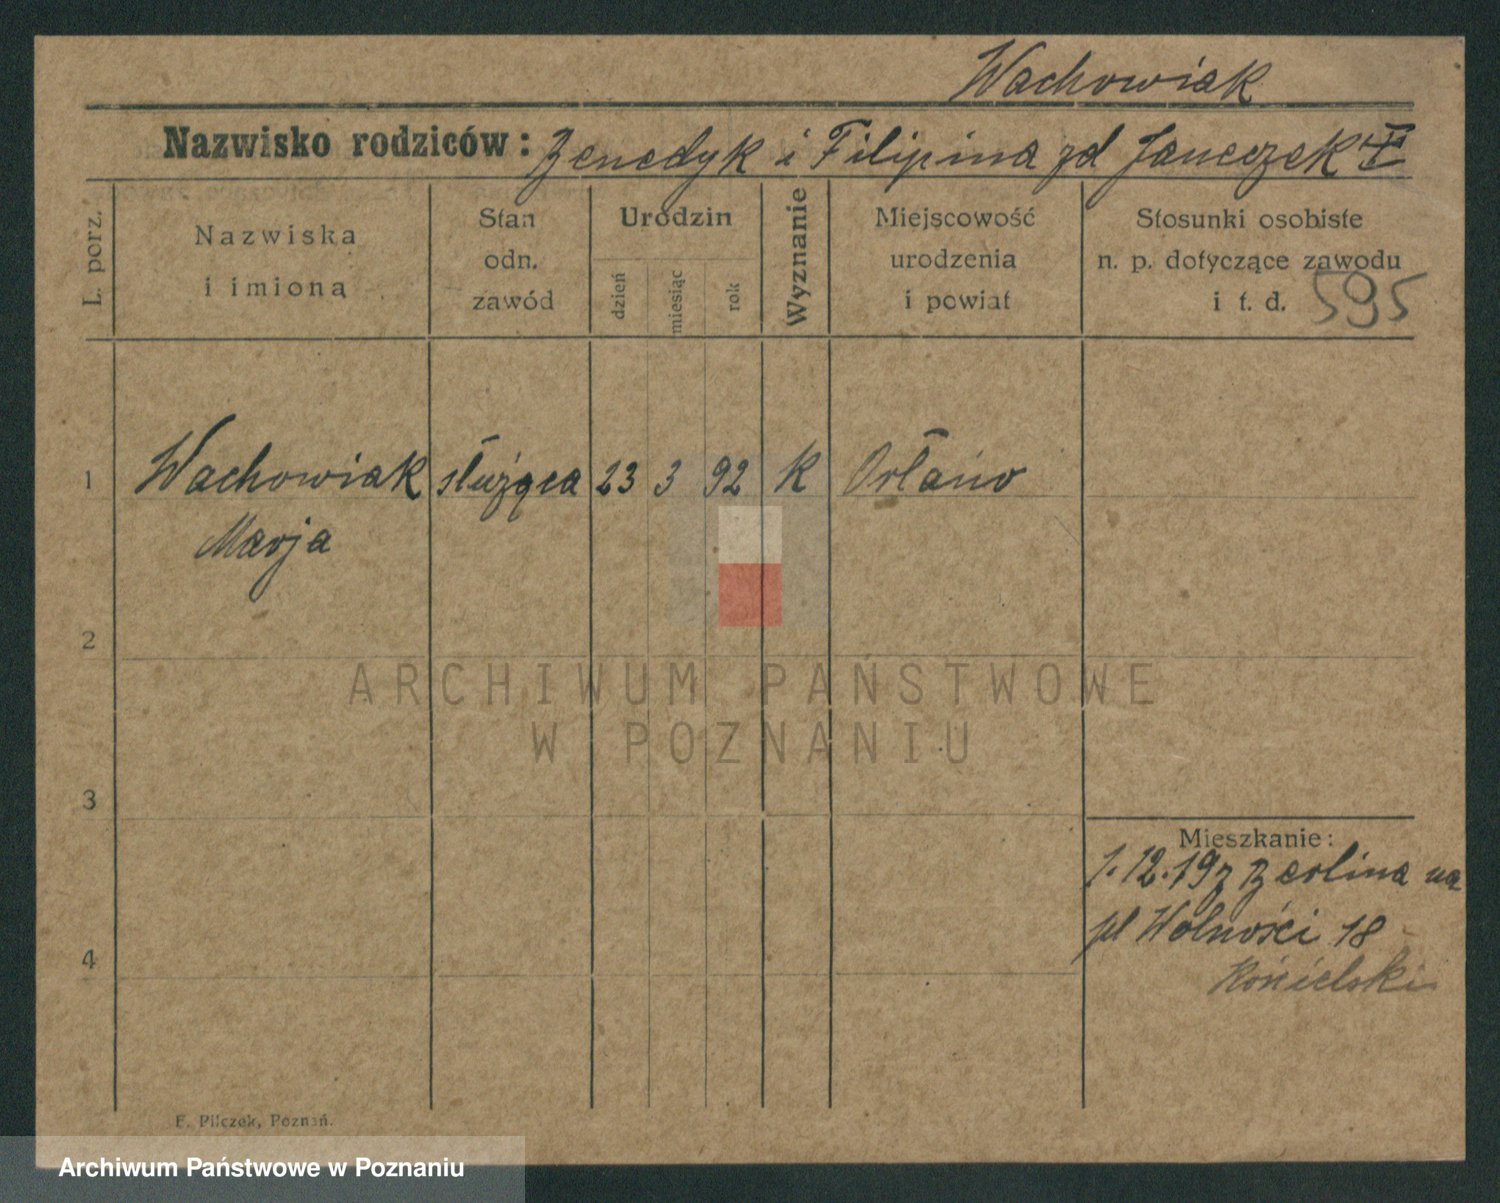 Wachowiak
Nazwisko rodziców: Benedyk i Filipina zd Janeczek
L. porz.
Nazwiska
i imiona
Stan
odn.
zawód
Urodzin
dzień
miesiąc
rok
Wyznanie
Miejscowość
urodzenia
i powiat
Stosunki osobiste
n. p. dotyczące zawodu
i t. d. 595
1 Wachowiak służąca 23 3 92 K
Marja
2
ARCHIWUM PAŃSTWOWE
W POZNANIU
3
Mieszkanie:
1.12.19 z Berlina na
4 pl Wolności 18
E. Pilczek, Poznań.
Archiwum Państwowe w Poznaniu